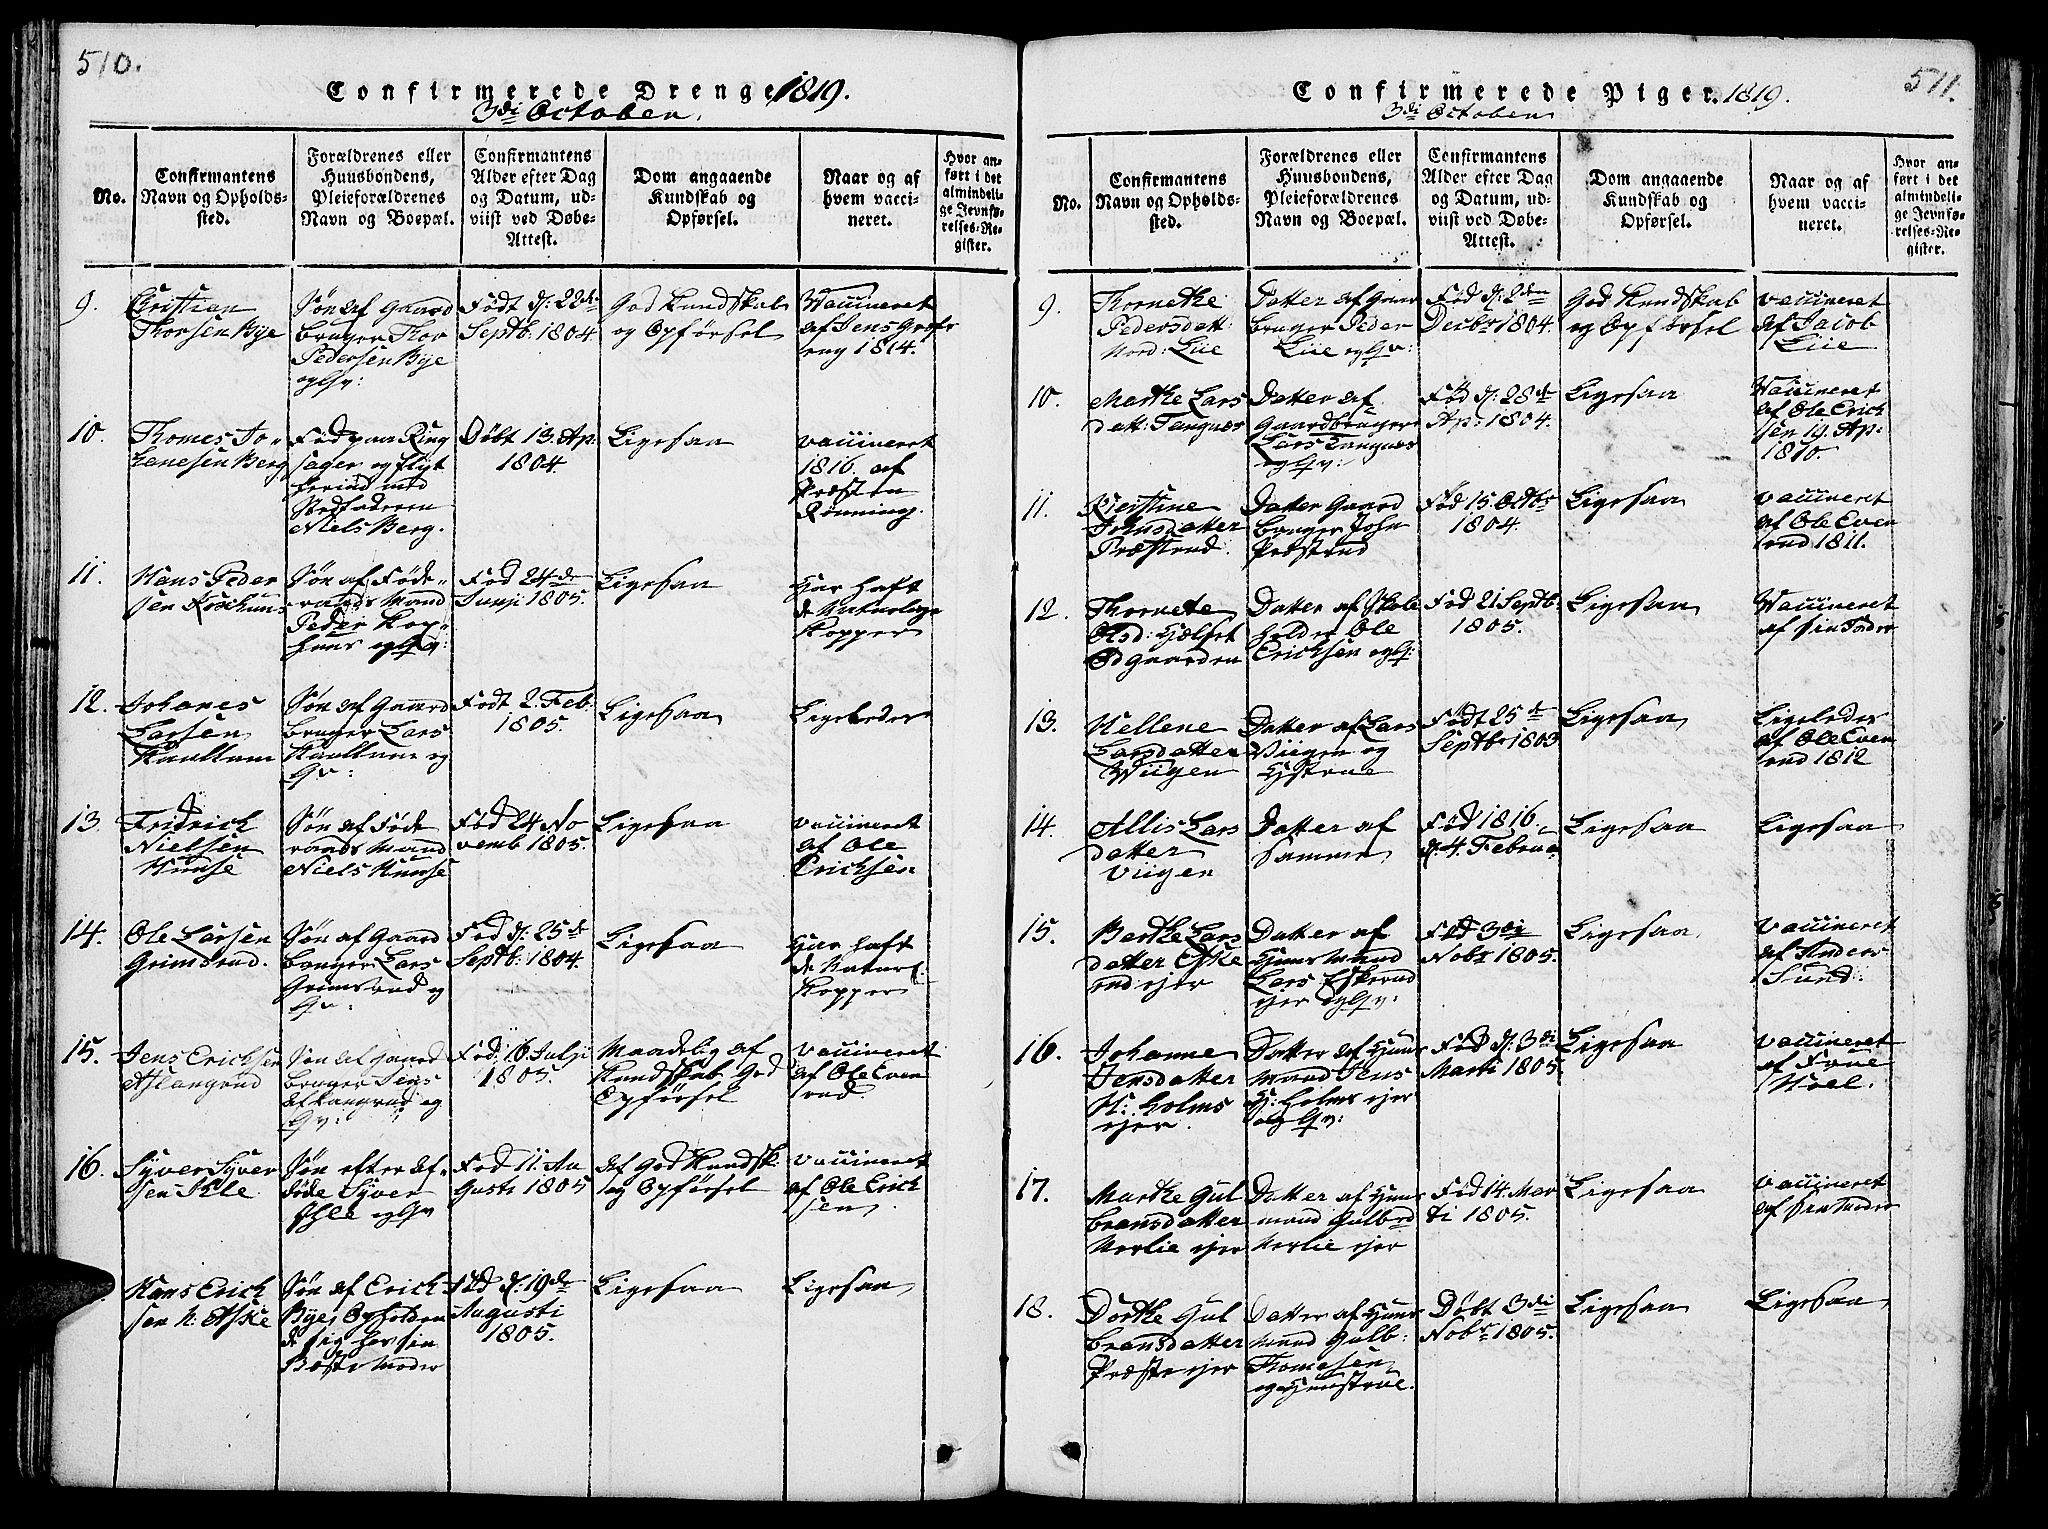 510.
Confirmerede Drenge 1819.
3di October.
No.
Confirmantens
Navn og Opholds-
sted.
Forældrenes eller
Huusbondens,
Pleieforældrenes
Navn og Boepæl.
Confirmantens
Alder efter Dag
og Datum, ud-
viist ved Døbe-
Attest.
Dom angaaende
Kundskab og
Opførsel.
Naar og af
hvem vacci-
neret.
Hvor an-
ført i det
almindeli-
ge Jevnfø-
relses-Re-
gister.
9.
Christian
Thorsen Bye
Søn af Gaard
bruger Thor
Pedersen Bye
og Hv:
Født d: 22de
Septb: 1804
God Kundskab
og Opførsel
Vaccineret
af Jens Grøfs
eng 1814.
10.
Thomes Jo-
hanesen Berg
Fød paa Ring
sager og flÿt
herind med
Stedfaderen
Niels Berg.
Døbt 13. Ap.
1804.
Ligesaa
vaccineret
1816. af
Præsten
Rønning.
11.
Hans Peder
sen
Søn af Føde-
raads Mand
Peder
huus og Hv:
Fød 24de
Junji 1805.
Ligesaa
Har haft
de Naturlige
Kopper
12.
Johanes
Larsen
Søn af Gaard
bruger Lars
og
Hv:
Født 2. Feb:
1805.
Ligesaa
Ligeledes
13.
Fridrich
Nielsen
Hunse
Søn af Føde
raads Mand
Niels Hunse
Fød 24 No
vemb 1805.
Ligesaa
vaccineret
af Ole
Ericksen
14.
Ole Larsen
Grimsrud.
Søn af Gaard
bruger Lars
Grimsrud og
Hv:
Fød d: 25de
Septb: 1804.
Ligesaa
Har haft
de Naturl:
Kopper
15.
Jens Ericksen
Aslangrud
Søn af Gaard
bruger Jens
og
Hv:
Fød: 16 Julji
1805.
Maadelig af
Kundskab God
Opførsel
vaccineret
af Ole Even
rud.
16.
Syver Syver
sen Ihle
Søn efter af-
døde Syver
Ihle og Hv
Fød 11. Au
gusti 1805
af God Kundsk:
og Opførsel
vaccineret
af Ole Erick
sen
Hans Erick
sen N: Aske
Søn af Erick
Bye, Opholder
sig hos sin
Bæste Moder
Fød d: 19de
Augusti
1805.
Ligesaa
Ligesaa
511.
Confirmerede Piger. 1819.
3di October
No.
Confirmantens
Navn og Opholds-
sted.
Forældrenes eller
Huusbondens,
Pleieforældrenes
Navn og Boepæl.
Confirmantens
Alder efter Dag
og Datum, ud-
viist ved Døbe-
Attest.
Dom angaaende
Kundskab og
Opførsel.
Naar og af
hvem vacci-
neret.
Hvor an-
ført i det
almindeli-
ge Jevnfø-
relses-Re-
gister.
9.
Thornethe
Pedersdatt:
Nord: Liie
Datter af Gaar
bruger Peder
Liie og Hv:
Fød d: 2den
Decbr 1804.
God Kundskab
og Opførsel
vaccineret
af Jacob
Liie
10.
Marthe Lars
datt: Tangnes
Datter af
Gaardbruger
Lars Tangnes
og Hv:
Fød d: 28de
Ap: 1804.
Ligesaa
Vaccineret
af Ole Erick
sen 19. Ap:
1810.
11.
Kiersttine
Johnsdatter
Præsterud.
Datter Gaard
bruger John
Præsterud
Fød 15. Octbr
1804.
Ligesaa
vaccineret
af Ole Even
rud 1811.
12.
Thornete
Olsd: Hælset
Ødgaarden
Datter af Skole
holder Ole
Ericksen og H:
Fød 21 Septb:
1805.
Ligesaa
Vaccineret
af sin Fader
13.
Hellene
Larsdatter
Wiigen
Datter af Lars
Viigen og
Hystrue
Født 25de
Septbr 1803
Ligesaa
Ligeledes
af Ole Even
rud 1812
14.
Allis Lars
datter
Viigen
Datter af
Samme
Fød 1816.
d. 4. Februa
Ligesaa
Ligesaa
15.
Berthe Lars
datter Eske
rud ejer
Datter af
Huus Mand
Lars Eskerud
ejer og Hv:
Fød 3di
Nobr 1805.
Ligesaa
Vaccineret
af Anders
Sund.
16.
Johanne
Jensdatter
N: Holms
ejer.
Datter af Huus
mand Jens
N: Holms ejer
og Hv:
Fød d: 3di
Marti 1805
Ligesaa
vaccineret
af Tove
Hoel.
17.
Marthe Gul
bransdatter
Nerlie ejer
Datter af Huus
mand Gulbrd
Nerlie ejer
Fød 14. Mar
ti 1805.
Ligesaa
vaccineret
af sin Moder
18.
Dorthe Gul
bransdatter
Præste ejer
Datter af Huus
mand Gulb:
Thomesen
og Huustrue.
Døbt 3di
Nobr 1805.
Ligesaa
Ligesaa